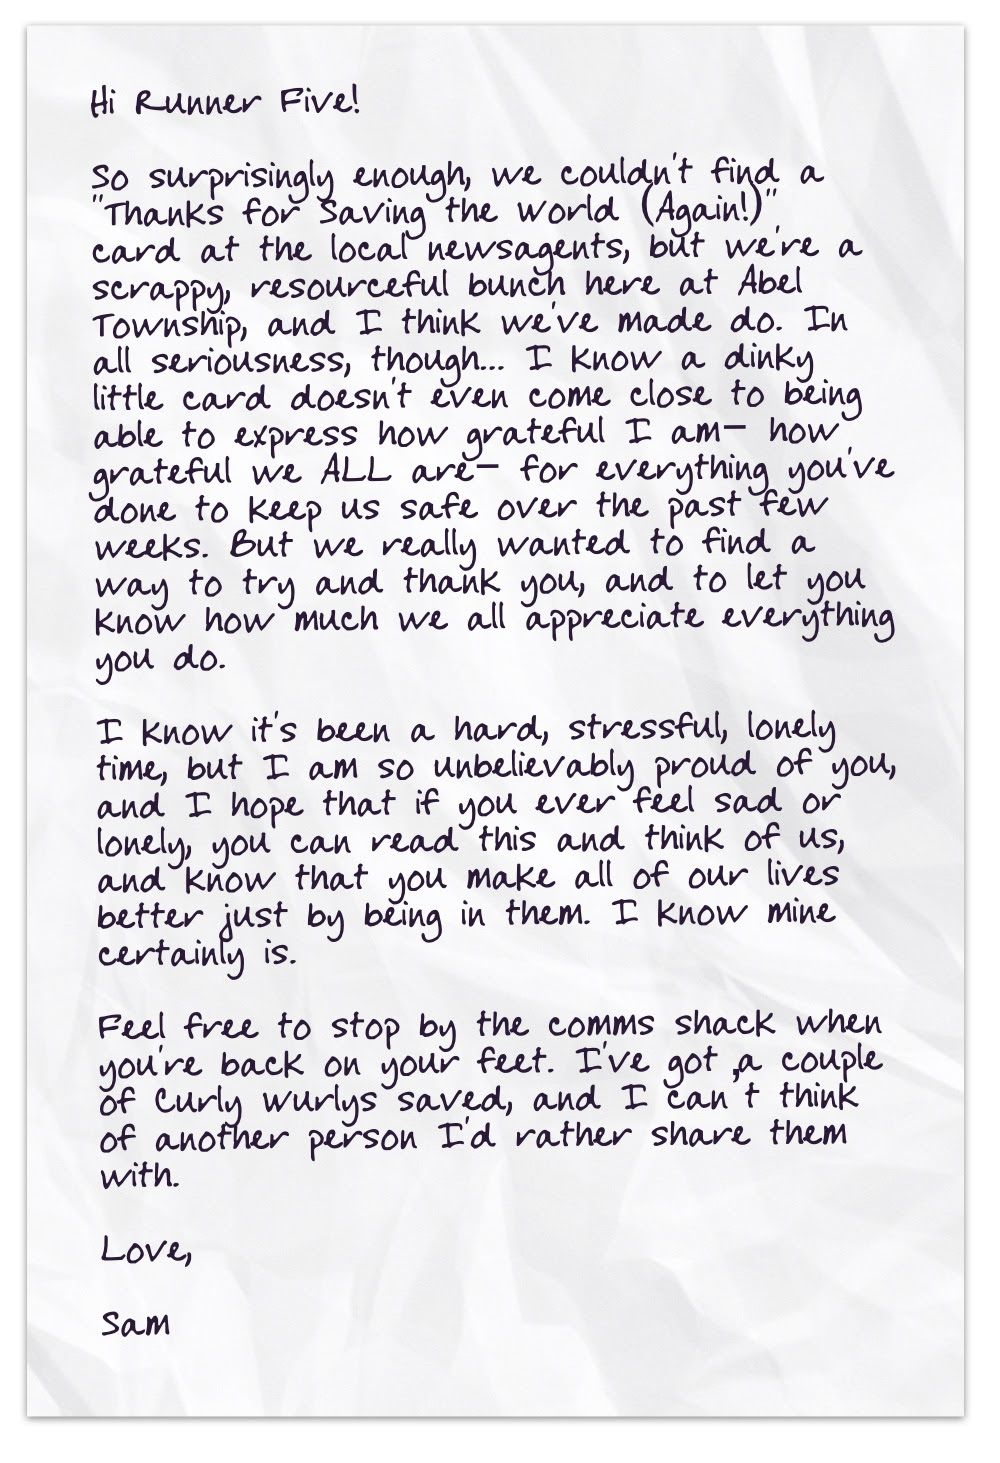 Hi Runner Five!
So surprisingly enough, we couldn't find a
"Thanks for Saving the world (Again!)"
card at the local newsagents, but we're a
scrappy, resourceful bunch here at Abel
Township, and I think we've made do. In
all seriousness, though... I know a dinky
little card doesn't even come close to being
able to express how grateful I am- how
grateful we ALL are- for everything you've
done to keep us safe over the past few
weeks. But we really wanted to find a
way to try and thank you, and to let you
know how much we all appreciate everything
you do.
I know it's been a hard, stressful, lonely
time, but I am so unbelievably proud of you,
and I hope that if you ever feel sad or
lonely, you can read this and think of us,
and know that you make all of our lives
better just by being in them. I know mine
certainly is.
Feel free to stop by the comms shack when
you're back on your feet. I've got ,a couple
of Curly Wurlys saved, and I can t think
of another person I'd rather share them
with.
Love,
Sam